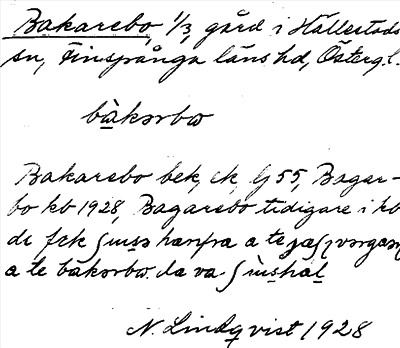 Bakarebo, 1/3, gård i Hällestads
sn, Finspånga läns hd, Östergl.
bàkərbω
Bakarebo bek, ek, G 55, Bagar-
bo kb 1928, Bagarebo tidigare i kb
də fek a te
a te bàkərbω. da va
N. Lindqvist 1928